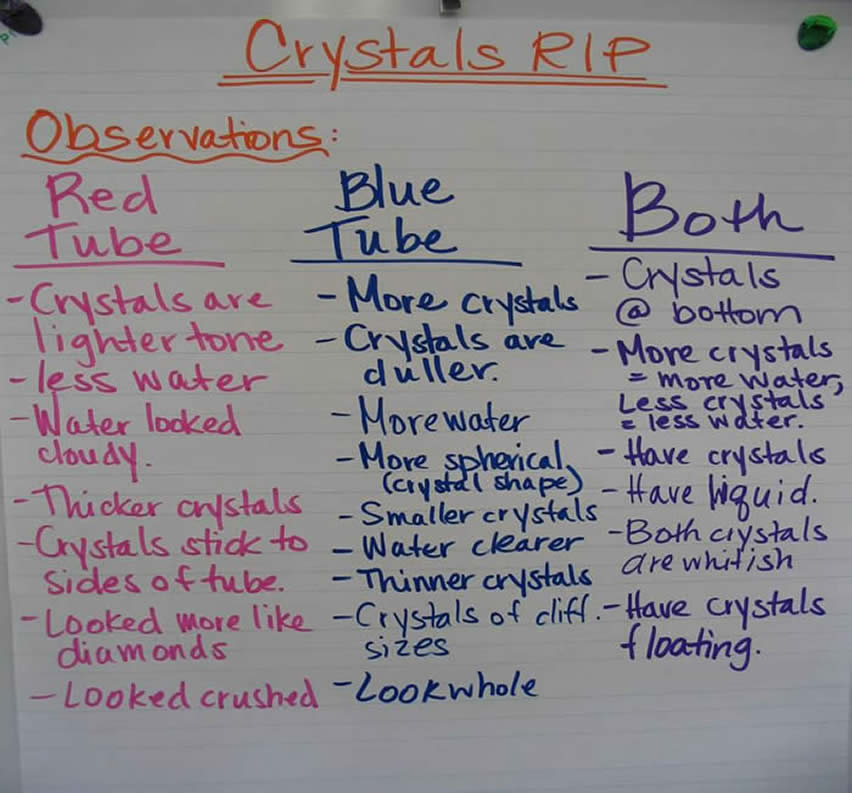 Crystals RIP
Observations:
Red
Tube
- Crystals are
lighter tone
- less water
- Water looked
cloudy.
- Thicker crystals
- Crystals stick to
sides of tube.
- Looked more like
diamonds
- Looked crushed
Blue
Tube
- More crystals
- Crystals are
duller.
- More water
- More spherical
(crystal shape)
- Smaller crystals
- Water clearer
- Thinner crystals
- Crystals of diff.
sizes
- Look whole
Both
- Crystals
@ bottom
- More crystals
= more water,
Less crystals
= less water.
- Have crystals
- Have liquid.
- Both crystals
are whitish
- Have crystals
floating.